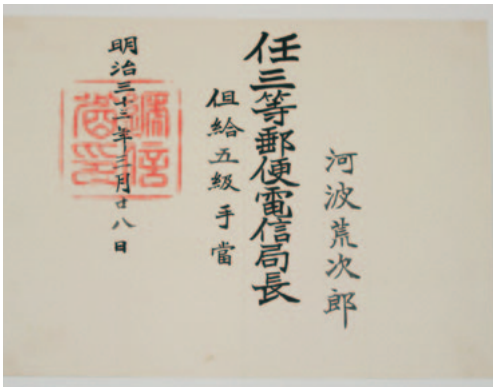 河波荒次郎
任三等郵便電信局長
但給五級手當
明治三十二年三月廿八日